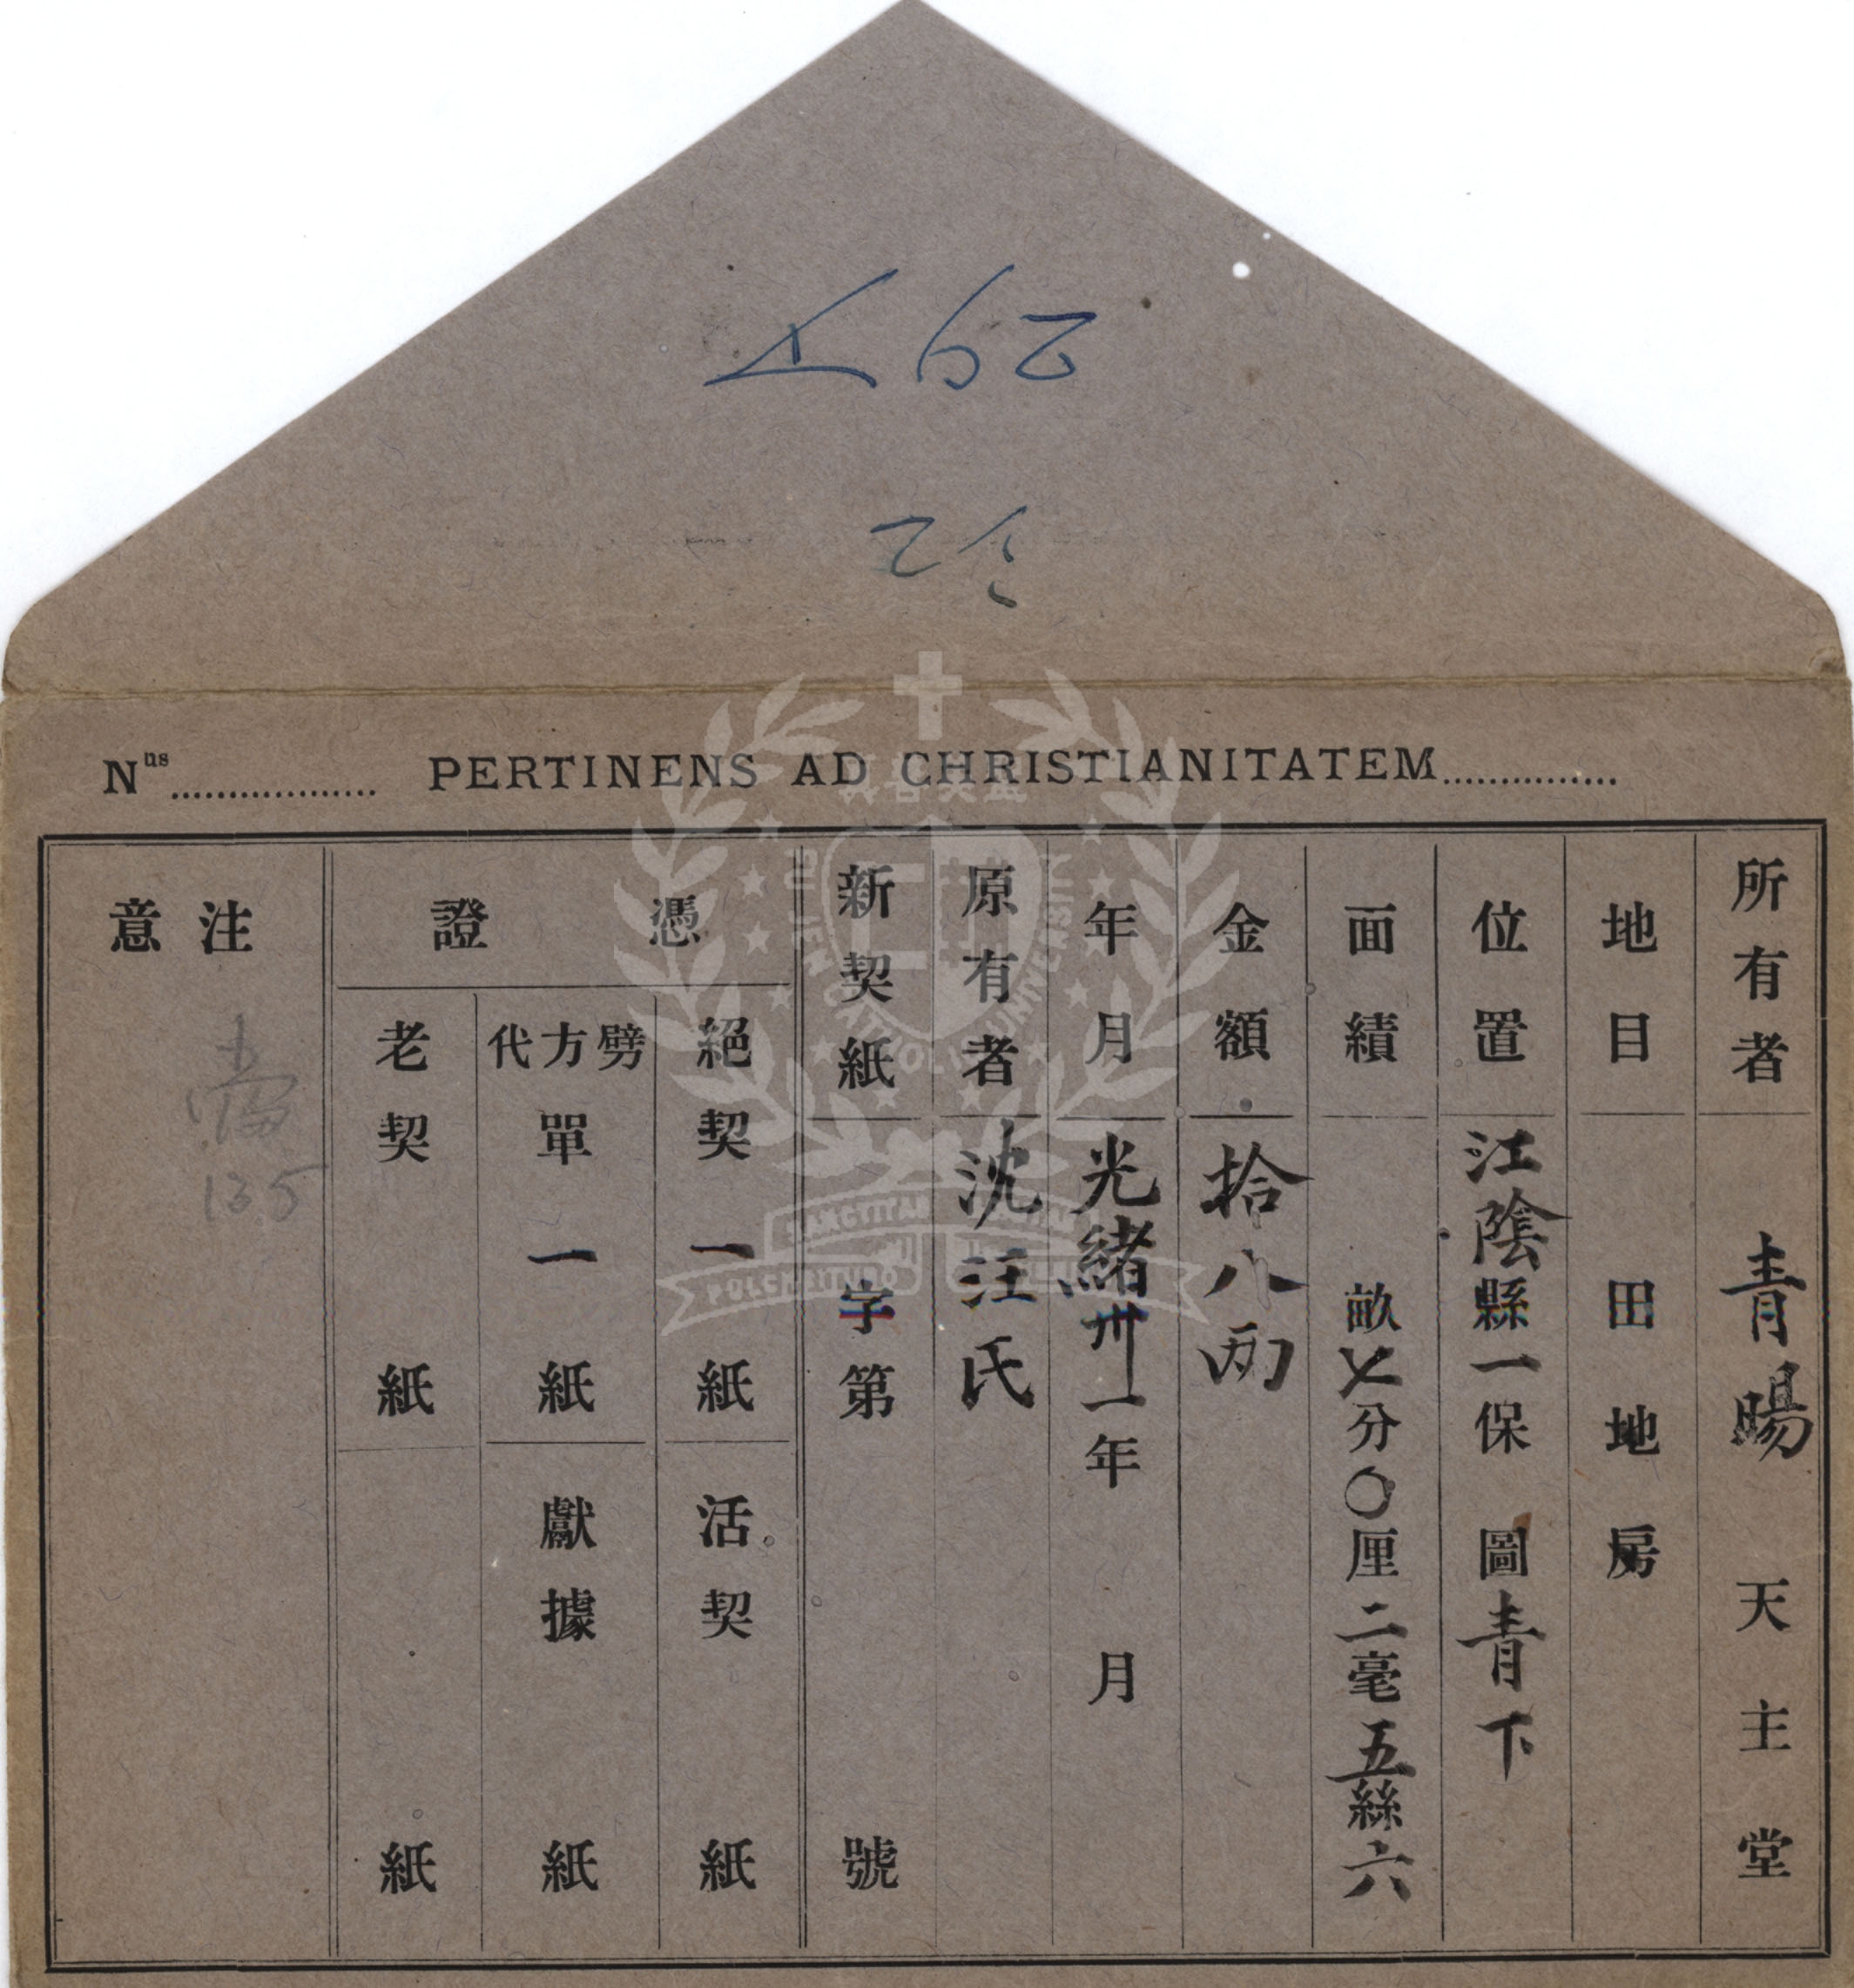 Nus.................. PERTINENS AD CHRISTIANITATEM...............
所有者 青暘 天主堂
地目 田地房
位置 江陰縣一保 圖青下
面積 畝七分〇厘二毫五絲六
金額 拾八兩
年月 光緒卅一年 月
原有者 沈汪氏
新契紙 字第 號
憑證
絕契 一 紙 活契 紙
劈方代單 一 紙 獻據 紙
老契 紙 紙
注意
135